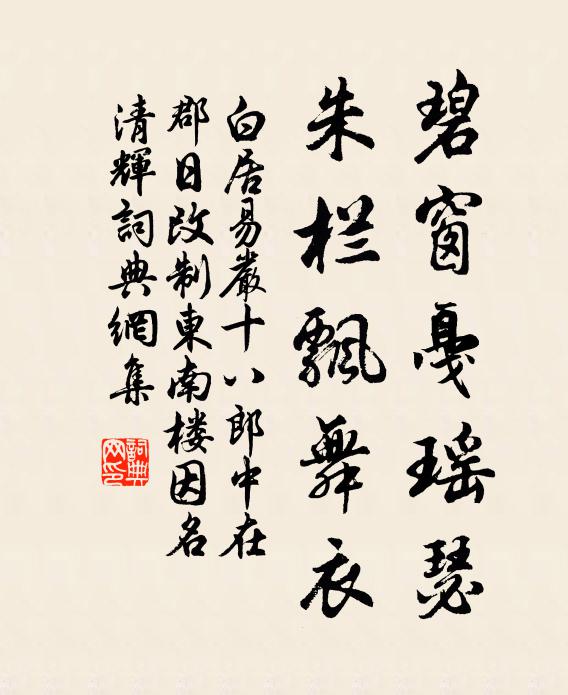 碧窗戛瑶瑟
朱栏飘舞衣
白居易嚴十八郎中在
郡日改制東南楼因名
清輝詞典網集
詞典
网印